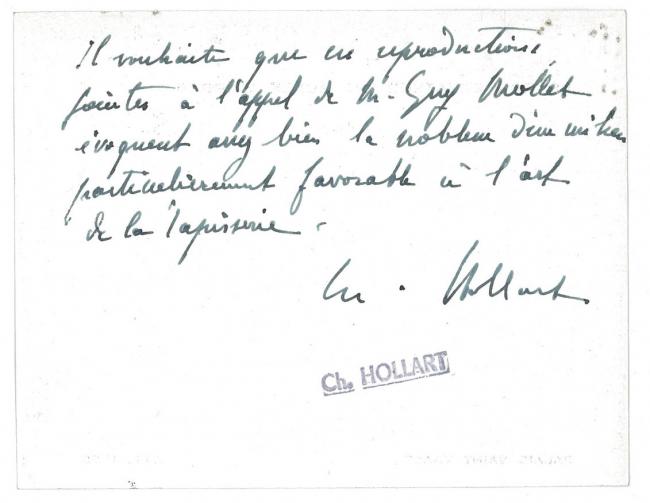 Il souhaite que ces reproductions,
jointes à l'appel de M. Guy Mollet
évoquent assez bien la noblesse d'un milieu
particulièrement favorable à l'art
de la Tapisserie.
Ch. Hollart
Ch. HOLLART